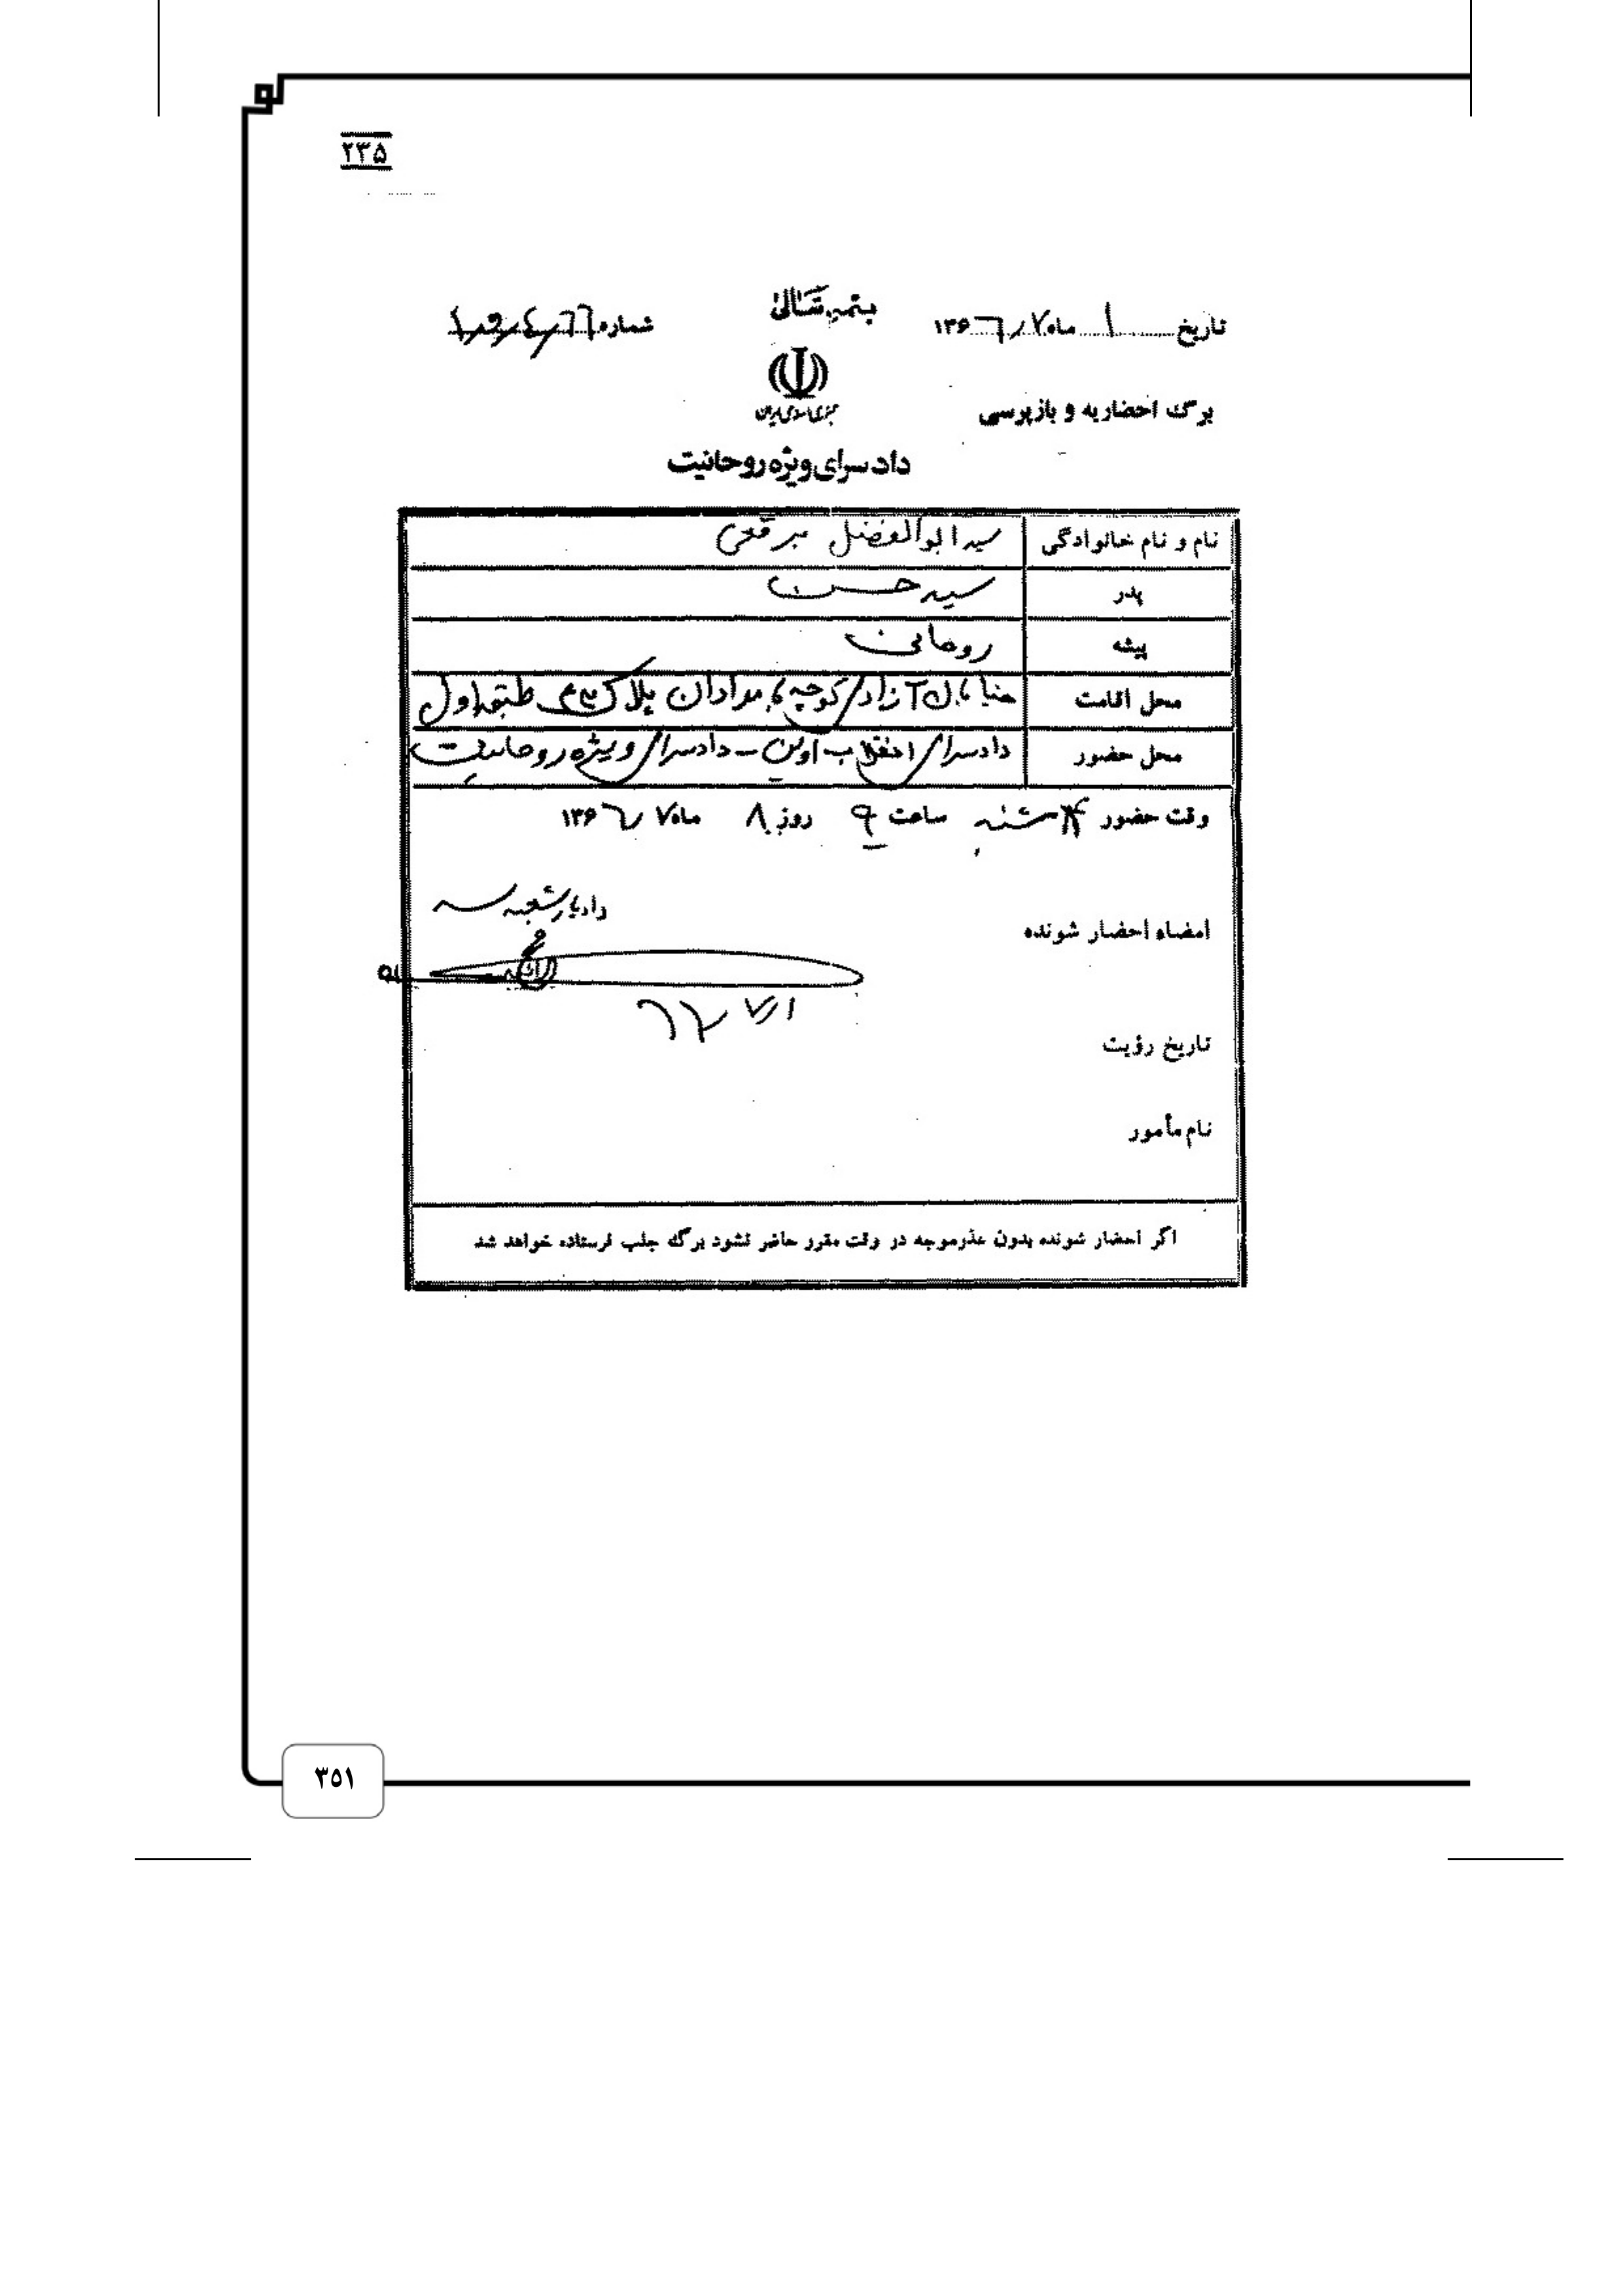 ۲۳۵
بسمه تعالی
تاریخ ۱ ماه ۷ / ۱۳۶۶
شماره
جمهوری اسلامی ایران
برگ احضاریه و بازپرسی
دادسرای ویژه روحانیت
نام و نام خانوادگی سید ابوالفضل برقعی
پدر سید حسن
پیشه روحانی
محل اقامت خیابان آزادی کوچه پلاک طبقه اول
محل حضور دادسرای انقلاب اوین - دادسرای ویژه روحانیت
وقت حضور ۴ شنبه ساعت ۹ روز ۸ ماه ۷ / ۱۳۶۶
دادیار شعبه سه
امضاء احضار شونده
تاریخ رؤیت
نام مأمور
اگر احضار شونده بدون عذرموجه در وقت مقرر حاضر نشود برگ جلب فرستاده خواهد شد
۳۵۱